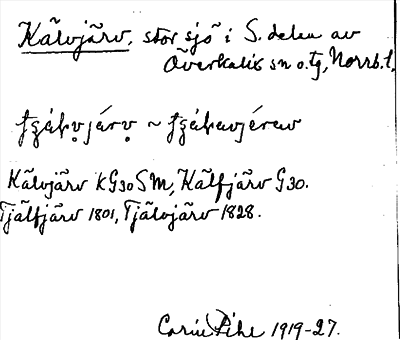 Kälvjärv, stor sjö i S. delen av
Överkalix sn o. tg, Norrb. l.
Kälvjärv KG30SM, Kälfjärv G30.
Tjälfjärv 1801, Tjälvjärv 1828.
Carin Pihl 1919-27.